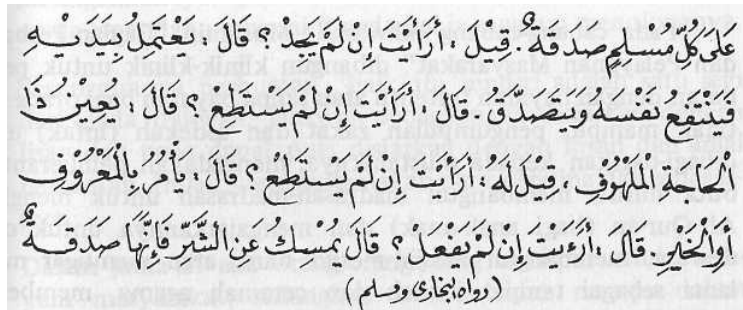 عَلَى كُلِّ مُسْلِمٍ صَدَقَةٌ. قِيْلَ : أَرَأَيْتَ إِنْ لَمْ يَجِدْ ؟ قَالَ : يَعْتَمِلُ بِيَدَيْهِ
فَيَنْتَفِعُ نَفْسَهُ وَيَتَصَدَّقُ. قَالَ : أَرَأَيْتَ إِنْ لَمْ يَسْتَطِعْ ؟ قَالَ : يُعِيْنُ ذَا
الْحَاجَةِ الْمَلْهُوْفَ، قِيْلَ لَهُ : أَرَأَيْتَ إِنْ لَمْ يَسْتَطِعْ ؟ قَالَ : يَأْمُرُ بِالْمَعْرُوْفِ
أَوِ الْخَيْرِ. قَالَ : أَرَأَيْتَ إِنْ لَمْ يَفْعَلْ ؟ قَالَ يُمْسِكُ عَنِ الشَّرِّ فَإِنَّهَا صَدَقَةٌ
(رواه البخارى ومسلم)